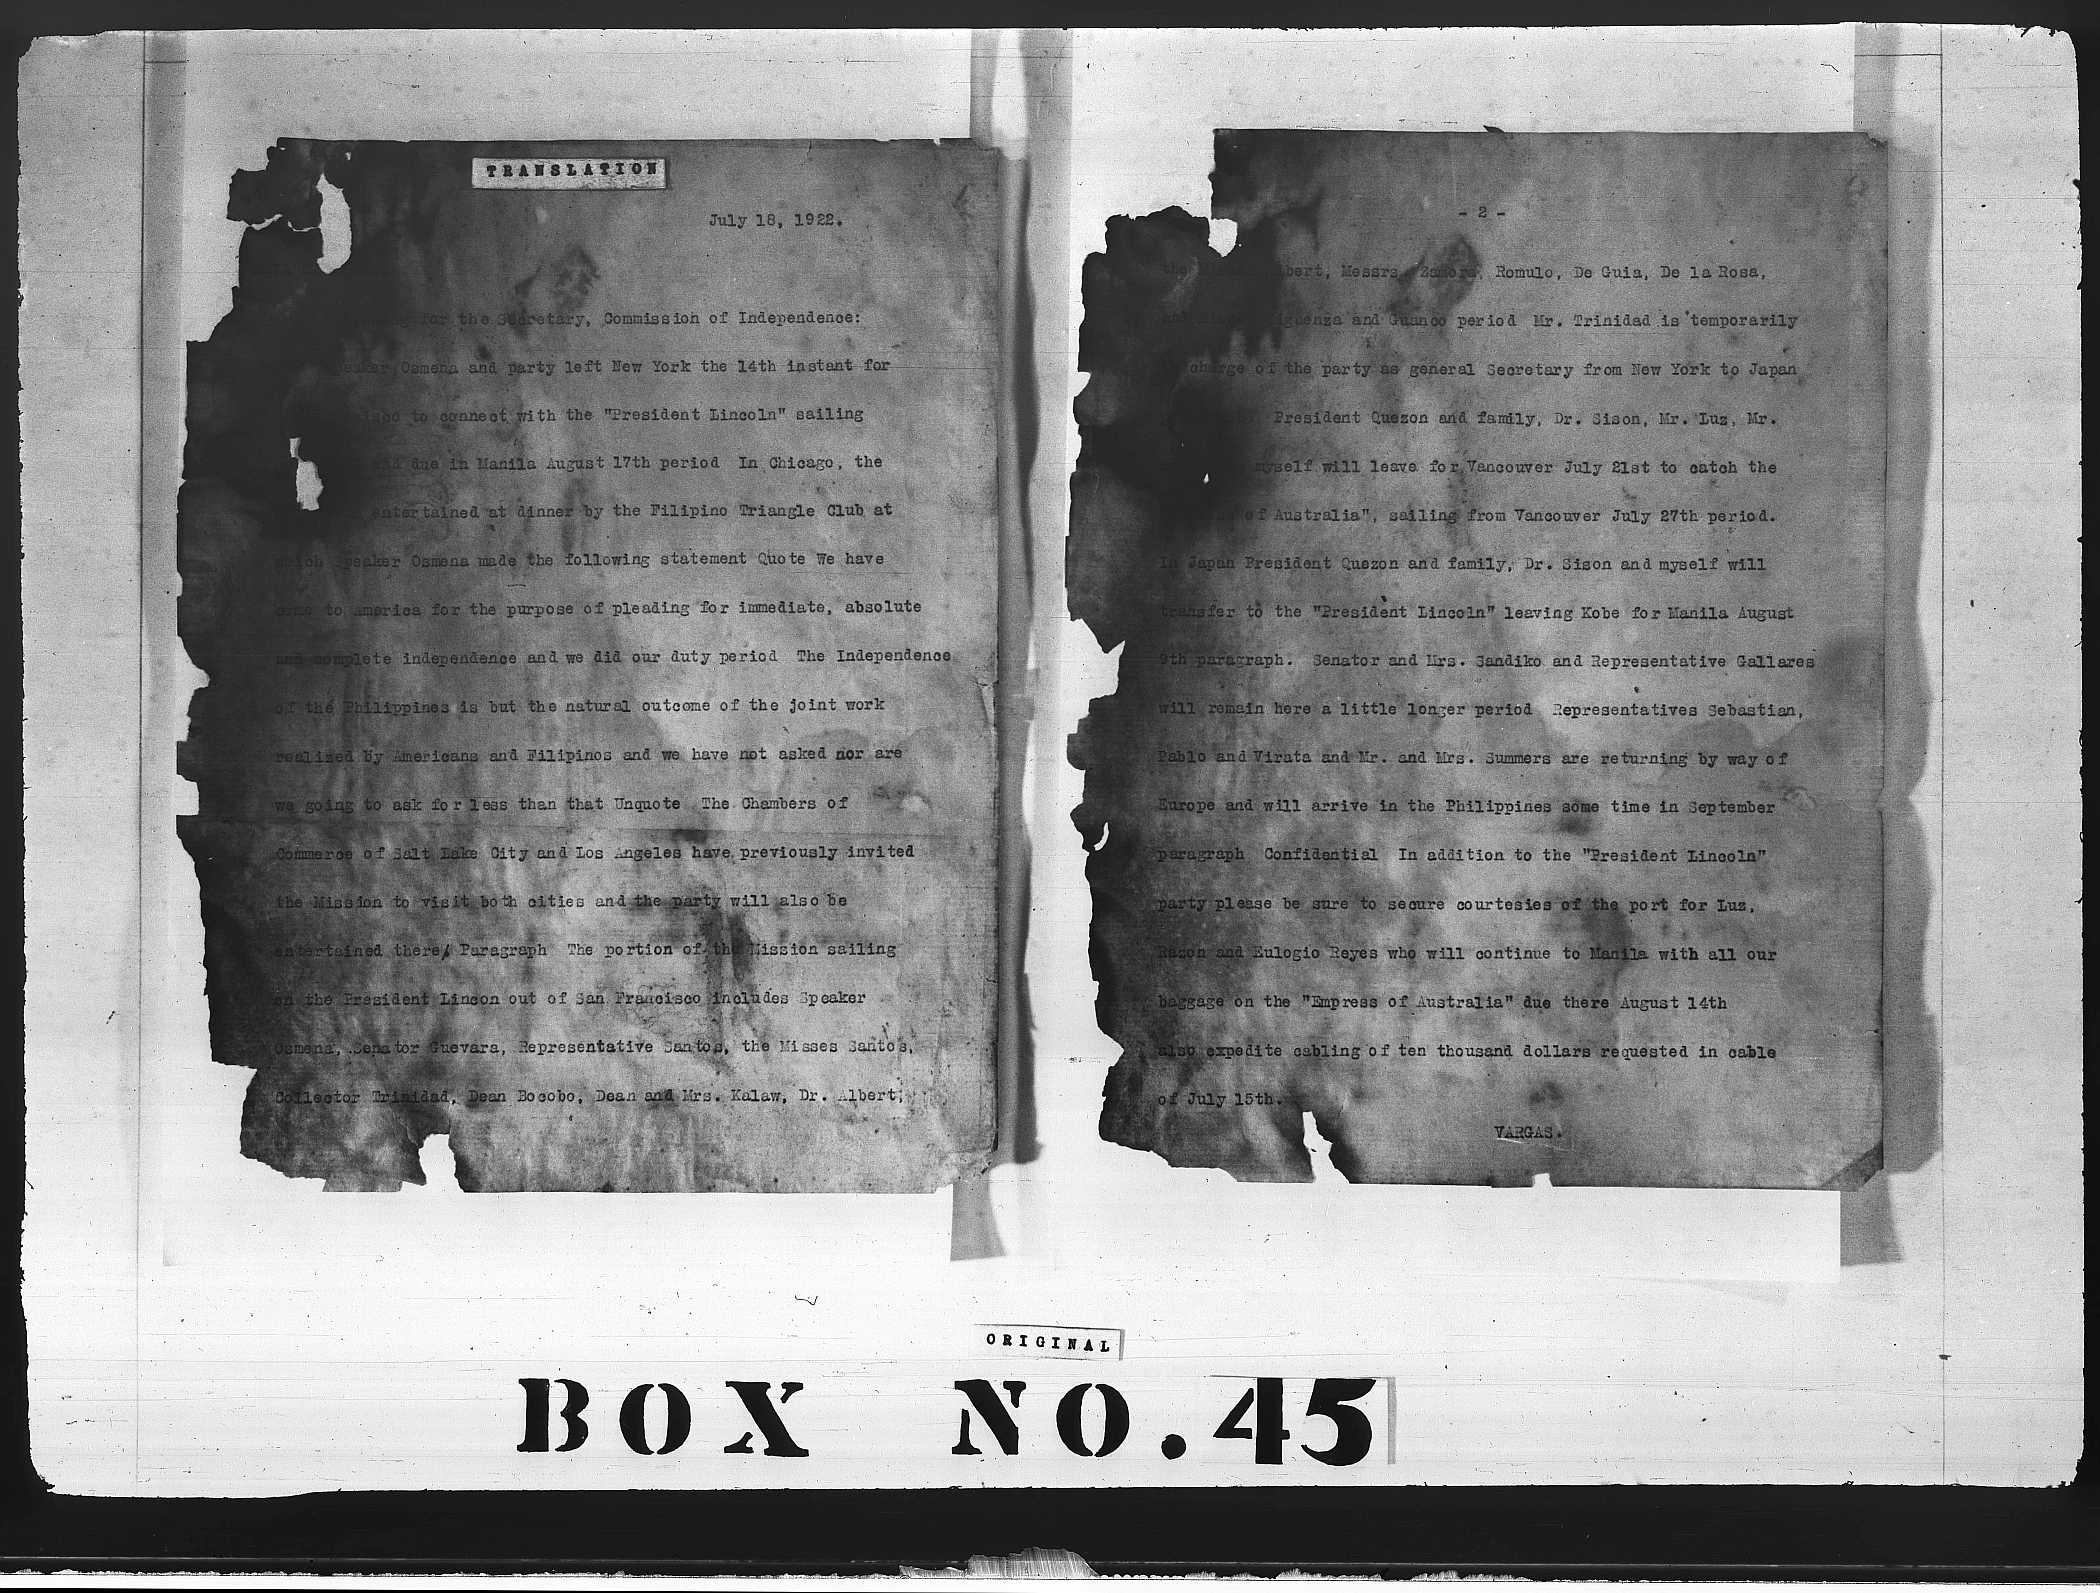 TRANSLATION
July 18, 1922.
for the Secretary, Commission of Independence:
Osmena and party left New York the 14th instant for
to connect with the "President Lincoln" sailing
due in Manila August 17th period In Chicago, the
entertained at dinner by the Filipino Triangle Club at
which Speaker Osmena made the following statement Quote We have
come to America for the purpose of pleading for immediate, absolute
and complete independence and we did our duty period The Independence
of the Philippines is but the natural outcome of the joint work
realized by Americans and Filipinos and we have not asked nor are
we going to ask for less than that Unquote The Chambers of
Commerce of Salt Lake City and Los Angeles have previously invited
the Mission to visit both cities and the party will also be
entertained there/ Paragraph The portion of the Mission sailing
on the President Lincon out of San Francisco includes Speaker
Osmena, Senator Guevara, Representative Santos, the Misses Santos,
Collector Trinidad, Dean Bocobo, Dean and Mrs. Kalaw, Dr. Albert,
- 2 -
the Albert, Messrs. Zamora, Romulo, De Guia, De la Rosa,
and Guanco period Mr. Trinidad is temporarily
charge of the party as general Secretary from New York to Japan
President Quezon and family, Dr. Sison, Mr. Luz, Mr.
myself will leave for Vancouver July 21st to catch the
of Australia", sailing from Vancouver July 27th period.
In Japan President Quezon and family, Dr. Sison and myself will
transfer to the "President Lincoln" leaving Kobe for Manila August
9th paragraph. Senator and Mrs. Sandiko and Representative Gallares
will remain here a little longer period Representatives Sebastian,
Pablo and Virata and Mr. and Mrs. Summers are returning by way of
Europe and will arrive in the Philippines some time in September
paragraph Confidential In addition to the "President Lincoln"
party please be sure to secure courtesies of the port for Luz,
Razon and Eulogio Reyes who will continue to Manila with all our
baggage on the "Empress of Australia" due there August 14th
also expedite cabling of ten thousand dollars requested in cable
of July 15th.
VARGAS.
ORIGINAL
BOX NO. 45